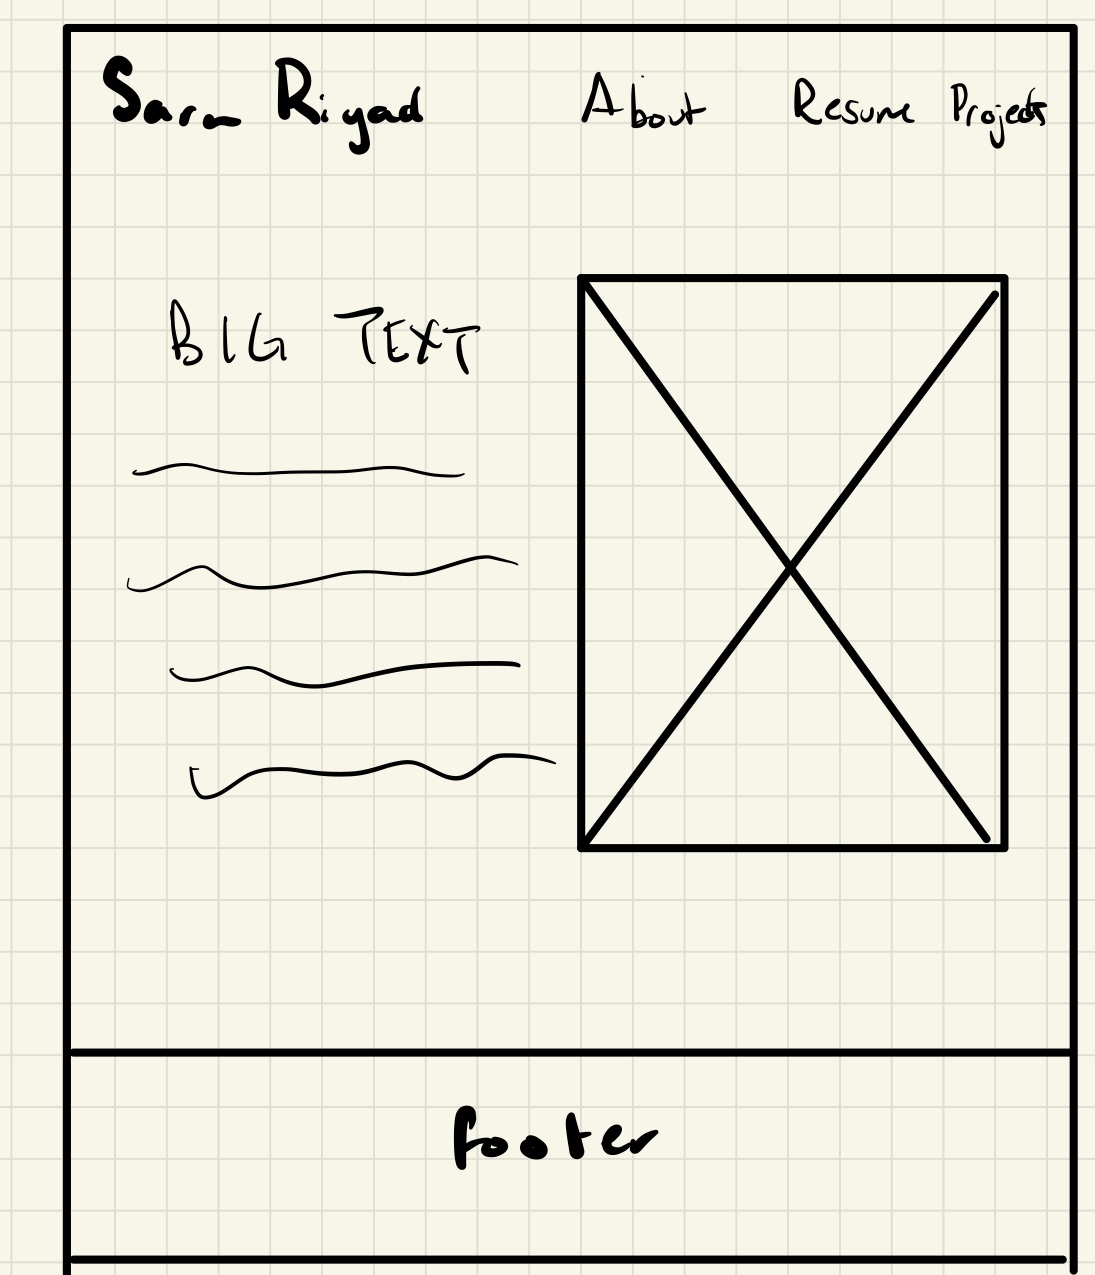 Sara Riyad About Resume Projects
BIG TEXT
footer